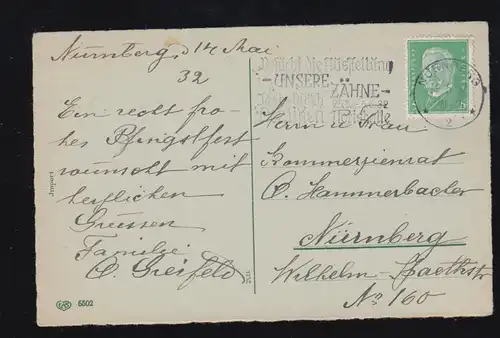 Nürnberg, 14 Mai
32
Ein recht fro-
hes Pfingstfest
wünscht mit
herzlichen
Grüssen
Familie
O. Greifeld
Besucht die Ausstellung
-UNSERE ZÄHNE-
NÜRNBERG
2
Herrn u Frau
Kommerzienrat
O. Hammerbacher
Nürnberg
Wilhelm-Spaethstr
No 160
Import
EAS 6502